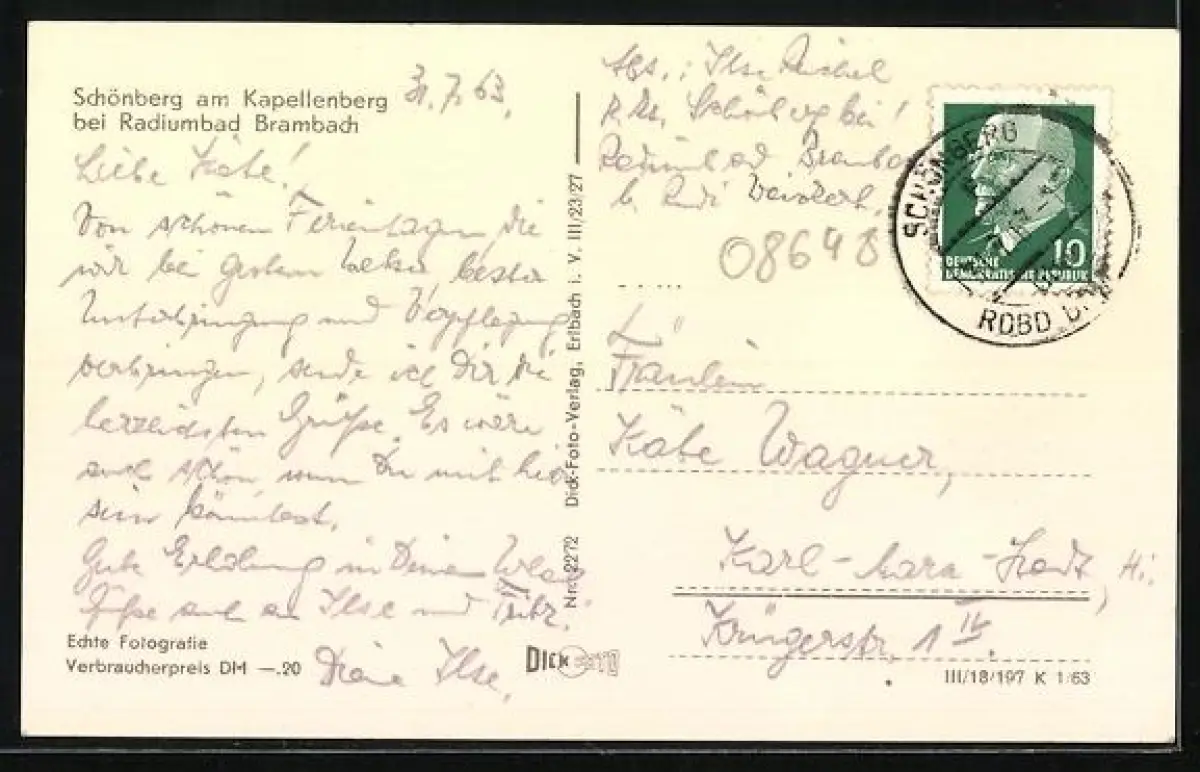 Schönberg am Kapellenberg
bei Radiumbad Brambach
31.7.63.
Liebe Käte!
Von schönen Ferientagen die
wir bei gutem Wetter, bester
Unterbringung und Verpflegung
verbringen, sende ich Dir die
herzlichsten Grüße. Es wäre
auch schön wenn Du mit hier
sein könntest.
Gute Erholung in Deinem
Grüße auch an Ilse und Fritz.
Deine Ilse.
Echte Fotografie
Verbraucherpreis DM —.20
DICK FOTO
Nr. 2272 Dick-Foto-Verlag, Erlbach i. V. III/23/27
Abs.: Ilse
Schönberg bei
Radiumbad Brambach
b. Rudi
08648
SCHÖNBERG
10
DEUTSCHE
DEMOKRATISCHE REPUBLIK
Fräulein
Käte Wagner,
Karl-Marx-Stadt, Hi.
Krügerstr. 1 IV.
III/18/197 K 1/63